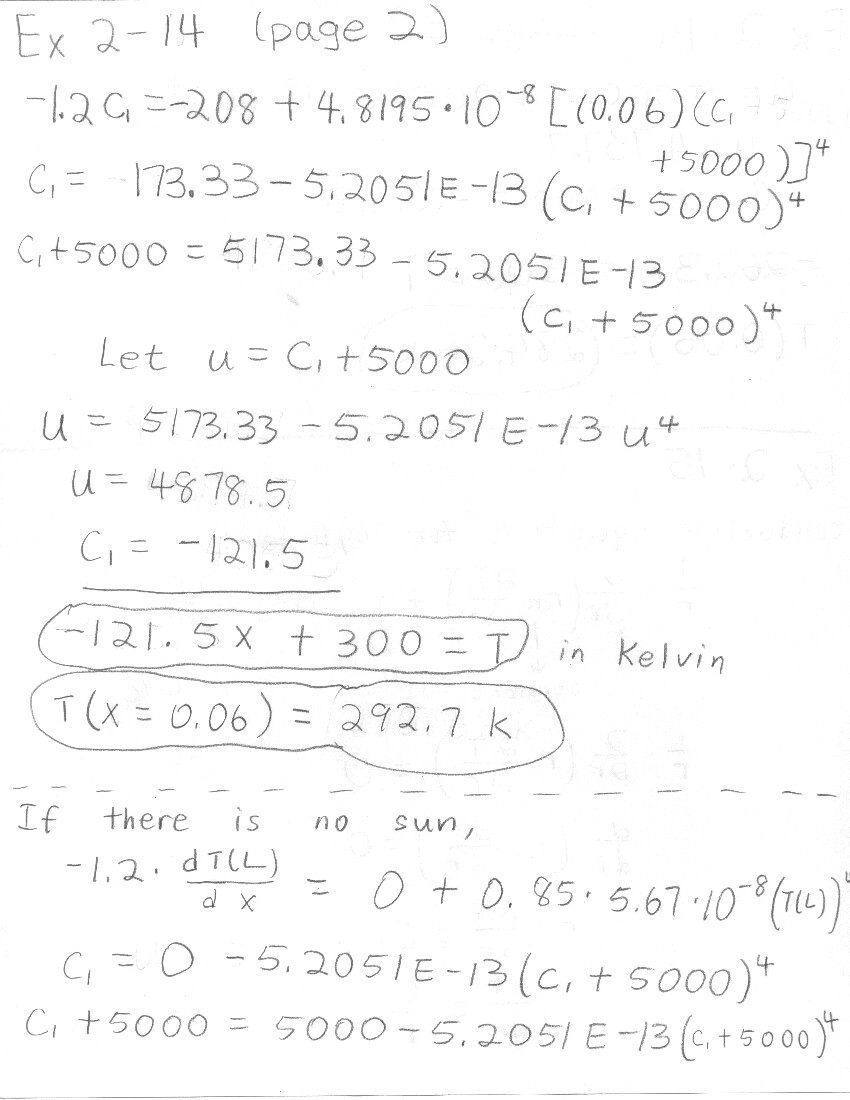 Ex 2-14 (page 2)
-1.2 C₁ = -208 + 4.8195·10⁻⁸ [(0.06)(C₁
+5000)]⁴
C₁ = 173.33 - 5.2051E-13 (C₁ + 5000)⁴
C₁+5000 = 5173.33 - 5.2051E-13
(C₁ + 5000)⁴
Let u = C₁ + 5000
u = 5173.33 - 5.2051E-13 u⁴
u = 4878.5
C₁ = -121.5
-121.5x + 300 = T in Kelvin
T(x = 0.06) = 292.7 K
If there is no sun,
-1.2 · dT(L)/dx = 0 + 0.85·5.67·10⁻⁸(T(L))⁴
C₁ = 0 - 5.2051E-13 (C₁ + 5000)⁴
C₁ + 5000 = 5000 - 5.2051E-13 (C₁+5000)⁴